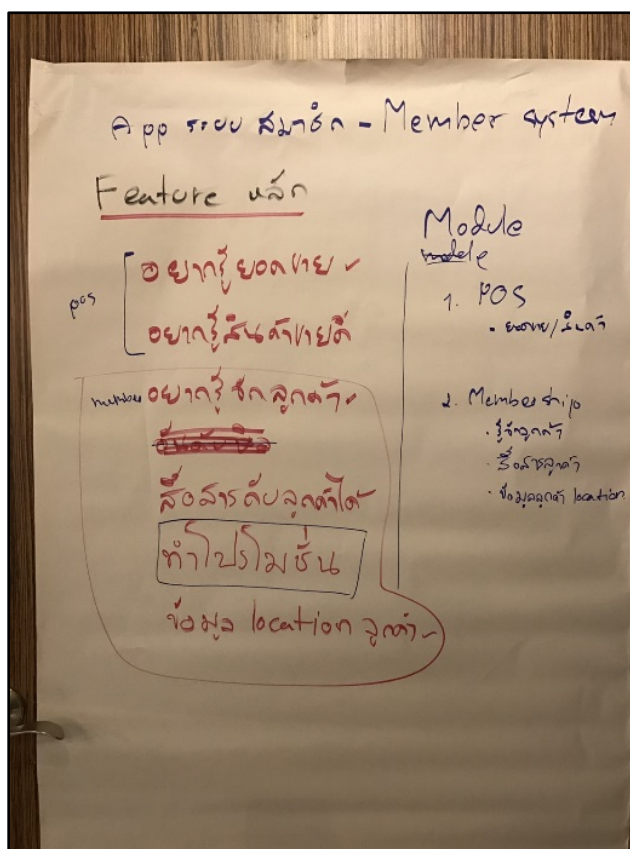 App ระบบ สมาชิก - Member system
Feature หลัก
pos
อยากรู้ยอดขาย
อยากรู้สินค้าขายดี
member
อยากรู้จักลูกค้า
สื่อสารกับลูกค้าได้
ทำโปรโมชั่น
ข้อมูล location ลูกค้า
Module
1. POS
• ยอดขาย/สินค้า
2. Membership
• รู้จักลูกค้า
• สื่อสารลูกค้า
• ข้อมูลลูกค้า location